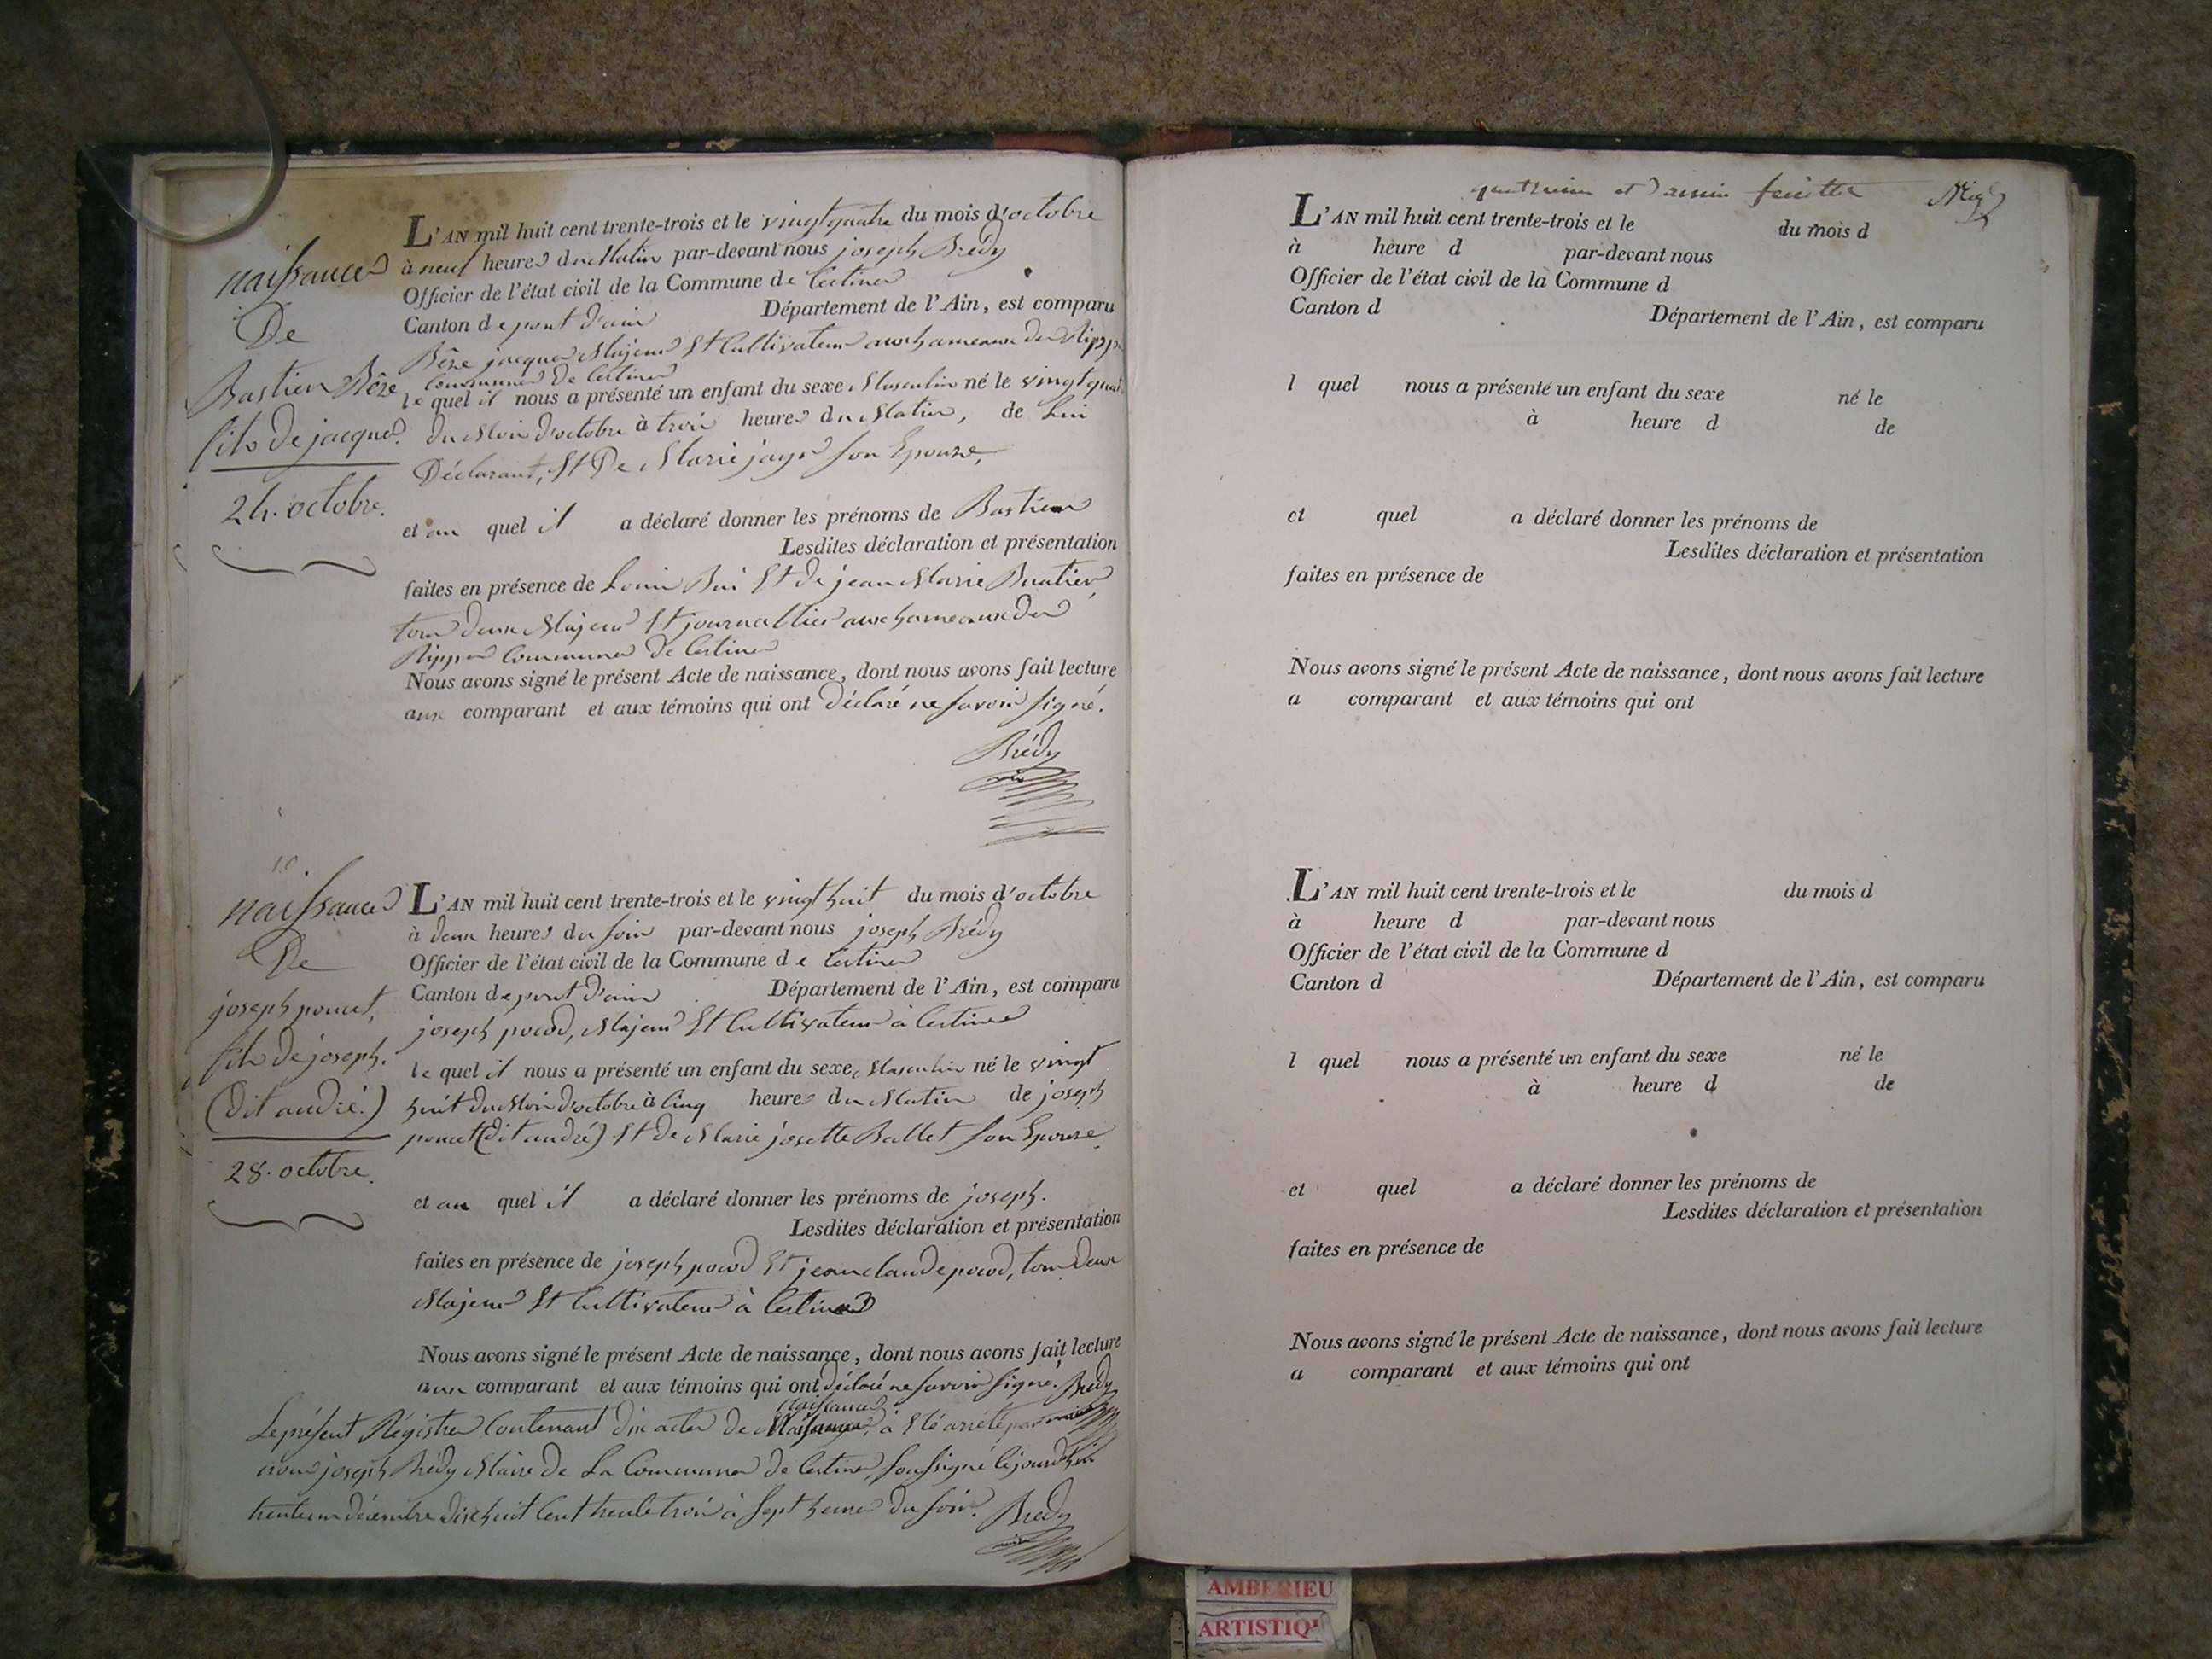 naissance
De
Bastien Bêne
fils de jacques.
24. octobre.
L'AN mil huit cent trente-trois et le vingtquatre du mois d'octobre
à neuf heures du Matin par-devant nous joseph Brédy
Officier de l'état civil de la Commune de Certines
Canton de pont d'ain Département de l'Ain, est comparu
Bêne jacques Majeur Et Cultivateur aux hameaux des Rippes
Commune de Certines
le quel il nous a présenté un enfant du sexe Masculin né le vingtquatre
du Mois d'octobre à trois heures du Matin, de Lui
Déclarant, Et De Marie jayr son Epouse,
et au quel il a déclaré donner les prénoms de Bastien
Lesdites déclaration et présentation
faites en présence de Louis Et de jean Marie Buatier,
tous deux Majeurs Et journallier aux hameaux des
Rippes Commune de Certines
Nous avons signé le présent Acte de naissance, dont nous avons fait lecture
aux comparant et aux témoins qui ont déclaré ne savoir signé.
Brédy
10
naissance
De
joseph poncet,
fils de joseph.
(dit andré.)
28. octobre.
L'AN mil huit cent trente-trois et le vingt huit du mois d'octobre
à deux heures du soir par-devant nous joseph Brédy
Officier de l'état civil de la Commune de Certines
Canton de pont d'ain Département de l'Ain, est comparu
joseph pocod, Majeur Et Cultivateur à Certines
le quel il nous a présenté un enfant du sexe Masculin né le vingt
huit du Mois d'octobre à Cinq heures du Matin de joseph
poncet (dit andré) Et de Marie josette Ballet son Epouse.
et au quel il a déclaré donner les prénoms de joseph.
Lesdites déclaration et présentation
faites en présence de joseph pocod Et jean claude pocod, tous deux
Majeurs Et Cultivateurs à Certines
Nous avons signé le présent Acte de naissance, dont nous avons fait lecture
aux comparant et aux témoins qui ont déclaré ne savoir signé. Brédy
Naissances
Le présent Régistre Contenant dix actes de Naissances, à Eté arrêté par
nous joseph Brédy Maire de La Commune de Certines, soussigné Cejourd'hui
trente un décembre dix huit Cent trente trois à sept heures du soir. Brédy
quatrième et dernier feuillet
L'AN mil huit cent trente-trois et le du mois d
à heure d par-devant nous
Officier de l'état civil de la Commune d
Canton d Département de l'Ain, est comparu
l quel nous a présenté un enfant du sexe né le
à heure d de
et quel a déclaré donner les prénoms de
Lesdites déclaration et présentation
faites en présence de
Nous avons signé le présent Acte de naissance, dont nous avons fait lecture
a comparant et aux témoins qui ont
L'AN mil huit cent trente-trois et le du mois d
à heure d par-devant nous
Officier de l'état civil de la Commune d
Canton d Département de l'Ain, est comparu
l quel nous a présenté un enfant du sexe né le
à heure d de
et quel a déclaré donner les prénoms de
Lesdites déclaration et présentation
faites en présence de
Nous avons signé le présent Acte de naissance, dont nous avons fait lecture
a comparant et aux témoins qui ont
AMBERIEU
ARTISTIQ